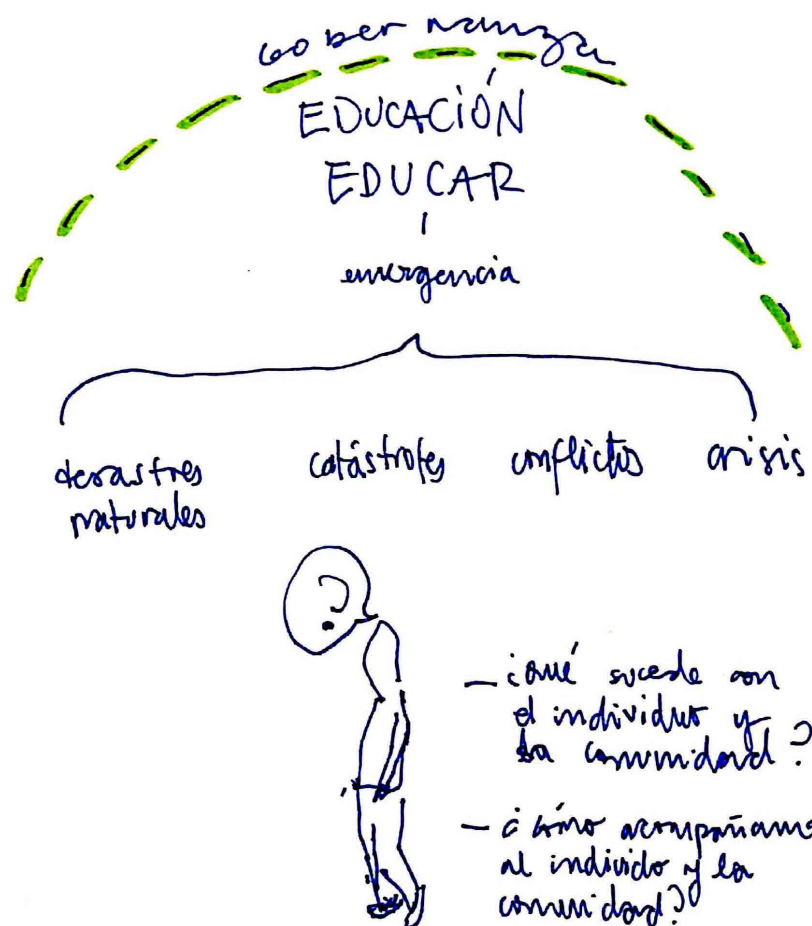 Gobernanza
EDUCACIÓN
EDUCAR
emergencia
desastres catástrofes conflictos crisis
naturales
– ¿qué sucede con
el individuo y
la comunidad?
– ¿cómo acompañamo
al individo y la
comunidad?